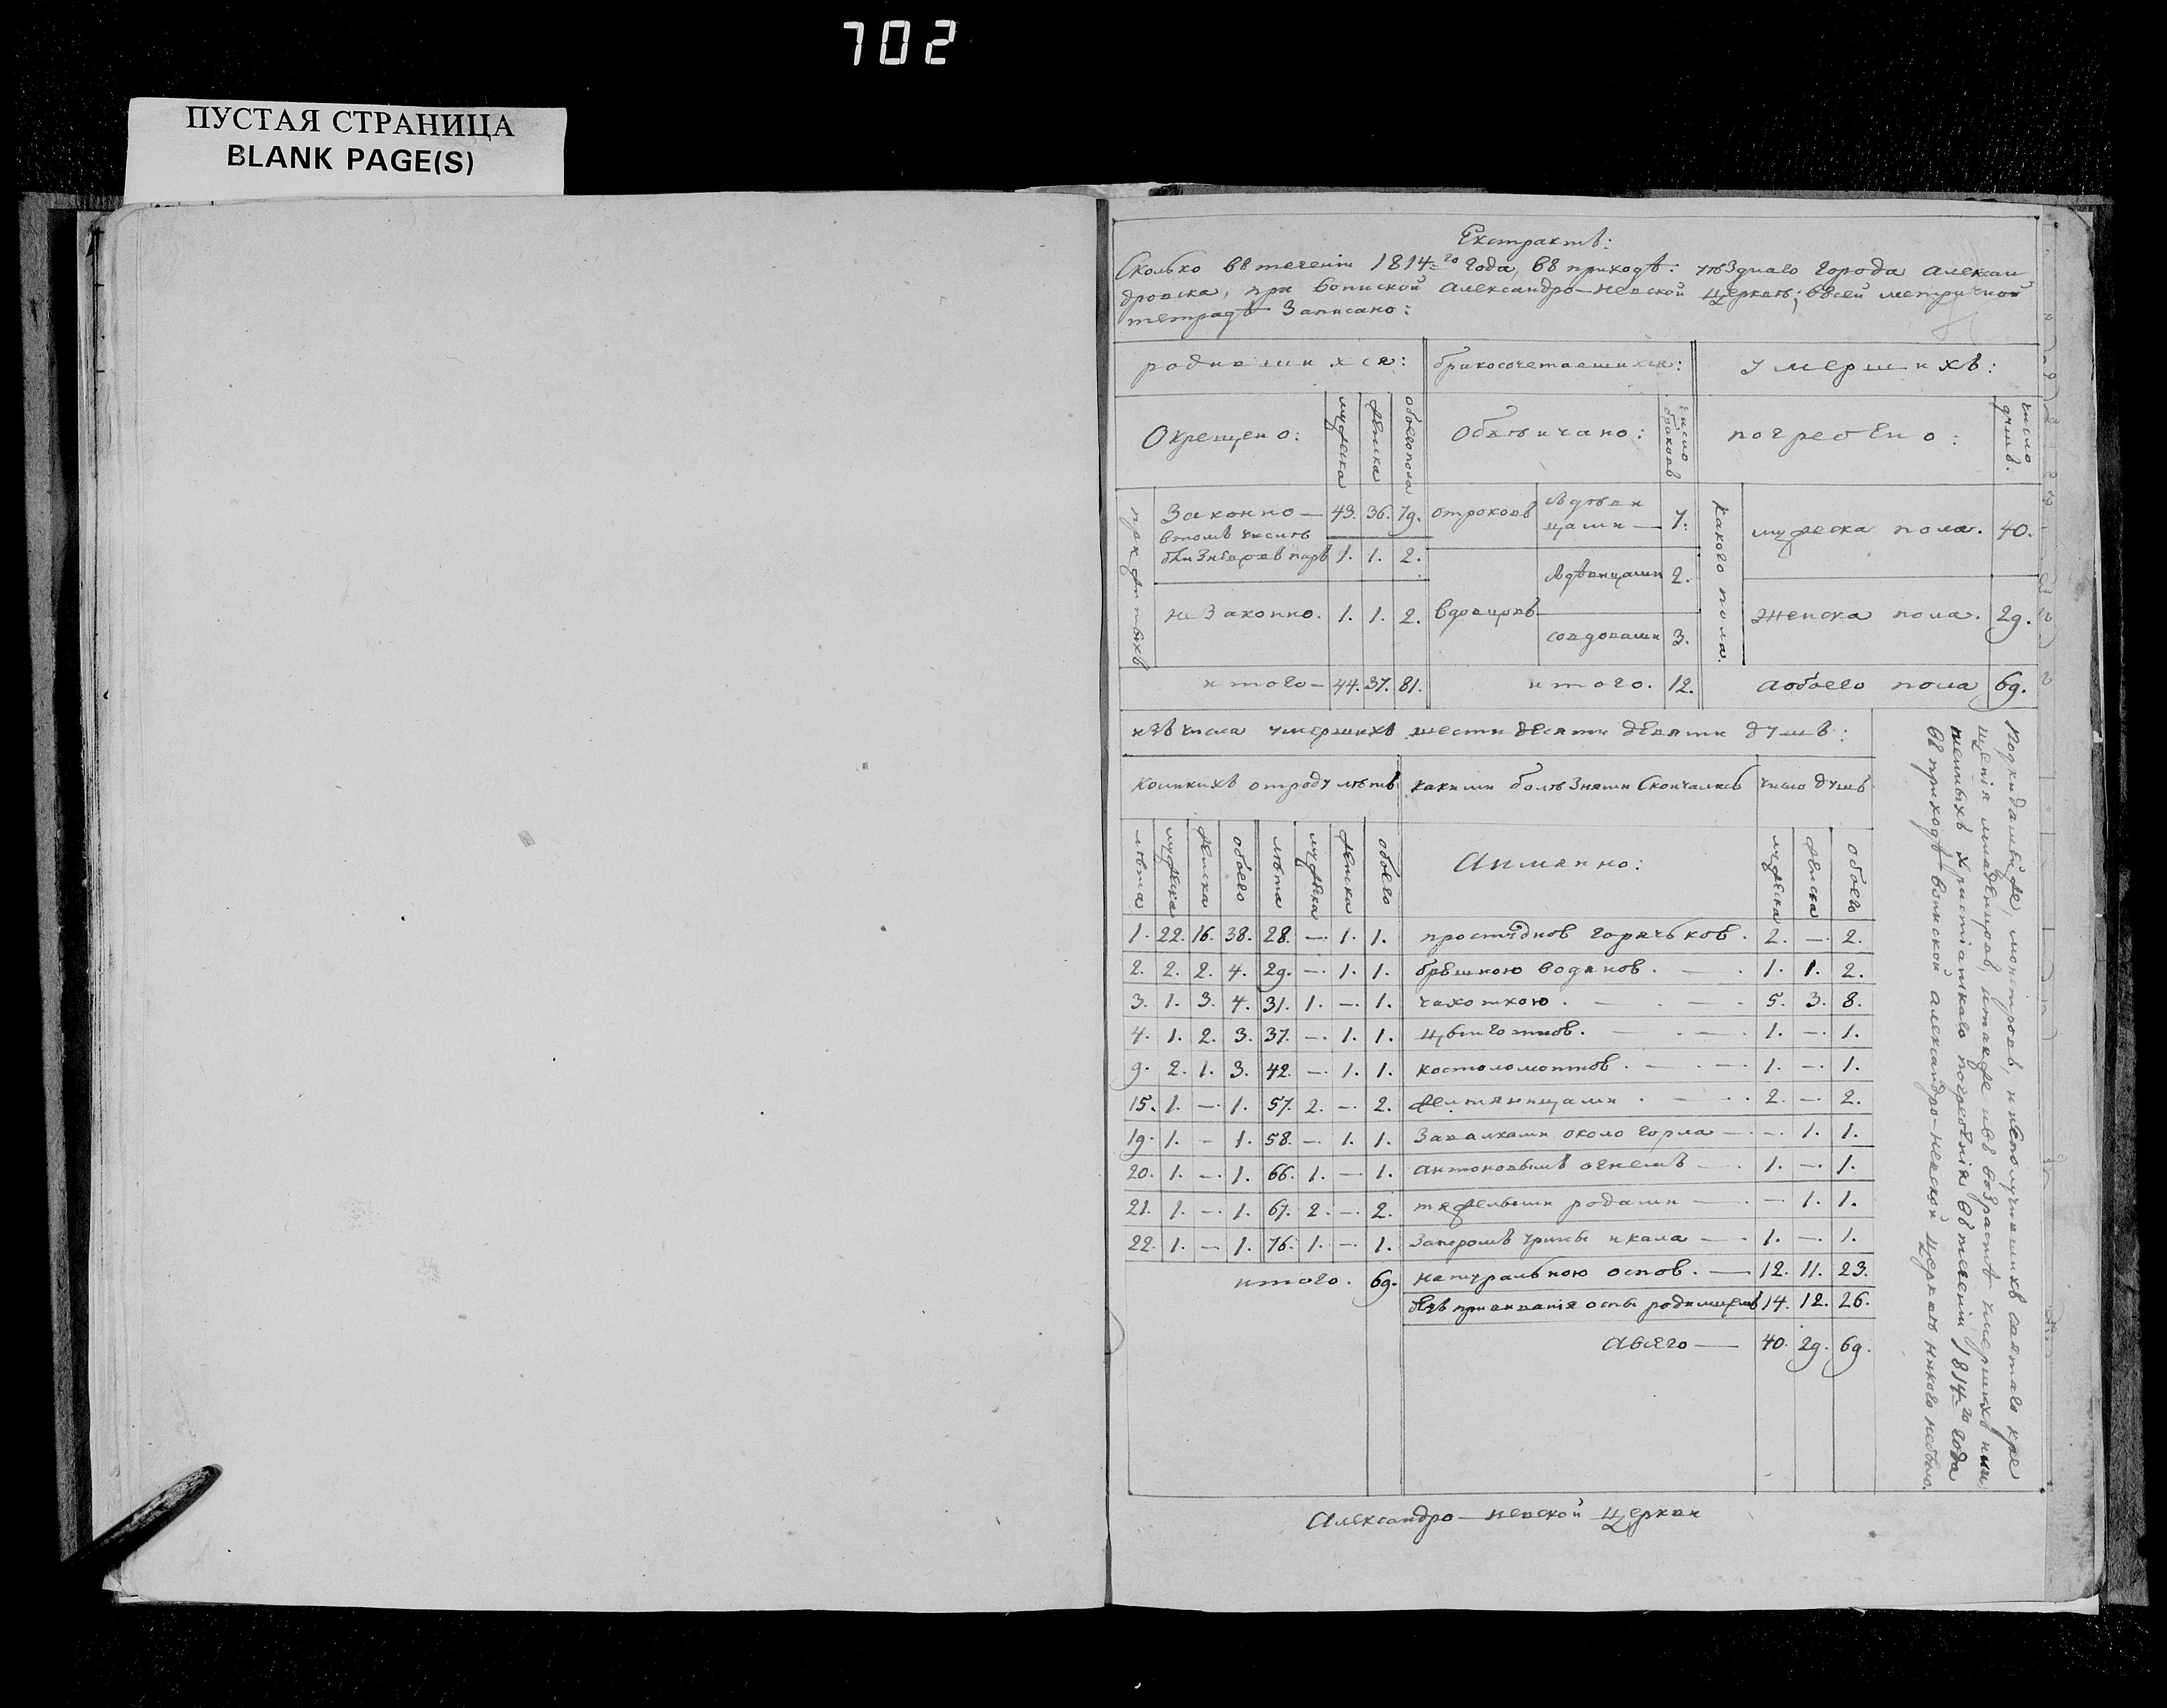 702
ПУСТАЯ СТРАНИЦА
BLANK PAGE(S)
Екстрактъ:
Сколько въ теченіи 1814-го года, въ приходѣ: уѣзднаго города Алексан
дровска, при воинской Александро-Невской церкви; въ сей метричной
тетрадѣ записано:
родившихся: бракосочетавшихся: умершихъ:
Окрещено: мужеска женска обоего пола Обвѣнчано: число браковъ погребено: число душъ.
прижитыхъ
Законно — 43. 36. 79. отроковъ съ дѣви
цами — 7. какого пола. мужеска пола. 40.
въ томъ числѣ
близнецовъ паръ 1. 1. 2.
съ дѣвицами 2.
не законно. 1. 1. 2. вдовцовъ женска пола. 29.
со вдовами 3.
итого — 44. 37. 81. итого. 12. а обоего пола 69.
изъ числа умершихъ шести десяти девяти душъ:
коликихъ отроду лѣтъ какими болѣзнями скончались число душъ
лѣта мужеска женска обоего лѣта мужеска женска обоего а имянно: мужеска женска обоего
1. 22. 16. 38. 28. —. 1. 1. простудною горячькою. 2. —. 2.
2. 2. 2. 4. 29. —. 1. 1. брюшною водяною. — . 1. 1. 2.
3. 1. 3. 4. 31. 1. —. 1. чахоткою. — . — 5. 3. 8.
4. 1. 2. 3. 37. —. 1. 1. цынготною. — . — 1. —. 1.
9. 2. 1. 3. 42. —. 1. 1. костоломотною. — . — 1. —. 1.
15. 1. —. 1. 57. 2. —. 2. желтяницами . — . 2. —. 2.
19. 1. — 1. 58. —. 1. 1. завалками около горла — . —. 1. 1.
20. 1. —. 1. 66. 1. — 1. антоновымъ огнемъ — . 1. —. 1.
21. 1. —. 1. 67. 2. —. 2. тяжелыми родами — . — 1. 1.
22. 1. — 1. 76. 1. —. 1. запоромъ урины и кала — . 1. —. 1.
итого. 69. натуральною оспою. — 12. 11. 23.
безъ прививанія оспы родимцемъ 14. 12. 26.
а всего — 40. 29. 69.
Подкидышей же, монстровъ, и неполучившихъ святаго кре
щенія младенцовъ, и также изъ возрастѣ умершихъ и ли
шенныхъ христіанскаго погребенія въ теченіи 1814-го года
въ приходѣ воинской Александро-Невской церкви никого небыло.
Александро-Невской церкви